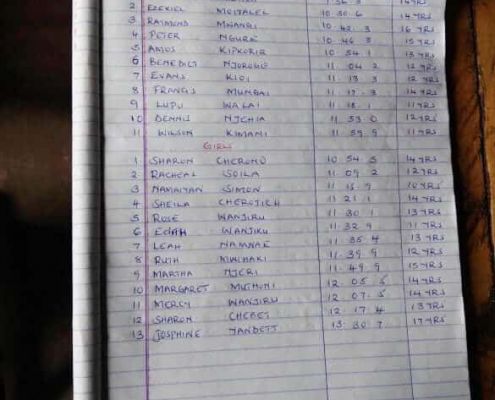 2 EZEKIEL MOITALEL 10 30 6 14 YRS
3 RAYMOND MWANRI 10 42 3 16 YRS
4 PETER NGURE 10 46 3 15 YRS
5 AMOS KIPKORIR 10 54 1 13 YRS
6 BENEDICT NJOROGE 11 04 2 12 YRS
7 EVANS KIOI 11 13 3 12 YRS
8 FRANCIS MUMBAI 11 17 3 14 YRS
9 LUPU WALAI 11 18 1 11 YRS
10 DENNIS NJEHIA 11 53 0 12 YRS
11 WILSON KIMANI 11 59 9 11 YRS
GIRLS
1 SHARON CHERONO 10 54 5 14 YRS
2 RACHEAL SOILA 11 09 2 12 YRS
3 NAMAIYAN SIMON 11 15 9 10 YRS
4 SHEILA CHEROTICH 11 21 1 14 YRS
5 ROSE WANJIRU 11 30 1 13 YRS
6 EDAH WANJIKU 11 32 9 11 YRS
7 LEAH NAMNAE 11 35 4 13 YRS
8 RUTH MWIHAKI 11 39 9 12 YRS
9 MARTHA NJERI 11 49 9 15 YRS
10 MARGARET MUTHONI 12 05 5 14 YRS
11 MERCY WANJIRU 12 07 5 14 YRS
12 SHARON CHEBET 12 17 4 13 YRS
13 JOSPHINE JANDETT 13 30 7 17 YRS